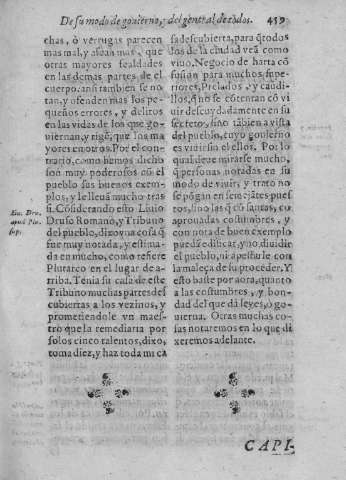 De su modo de gouierno, y del general de todos. 459
chas, ò verrugas parecen
mas mal, y afean mas, que
otras mayores fealdades
en las demas partes de el
cuerpo: ansi tambien se no
tan, y ofenden mas los pe
queños errores, y delitos
en las vidas de los que go
uiernan, y rigē, que los ma
yores en otros. Por el con
trario, como hemos dicho
son muy poderosos cō el
pueblo sus buenos exem-
plos, y le lleuā mucho tras
si. Cōsiderando esto Liuio
Druso Romano, y Tribuno
del pueblo, dixo vna cosa q̄
fue muy notada, y estima
da en mucho, como refiere
Plutarco en el lugar de a-
rriba. Tenia su casa de este
Tribuno muchas partes des
cubiertas a los vezinos, y
prometiendole vn maes-
tro que la remediaria por
solos cinco talentos, dixo,
toma diez, y haz toda mi ca
In. Dru.
apud Plu.
sup.
sa descubierta, para q̄ todos
los de la ciudad veā como
viuo. Negocio de harta cō
fusion para muchos supe-
riores, Prelados, y caudi-
llos, q̄ no se cōtentan cō vi
uir descuydadamente en su
secreto, sino tābien a vista
del pueblo, cuyo gouierno
es viuir sin el ellos. Por lo
qual deue mirarse mucho,
q̄ personas notadas en su
modo de viuir, y trato no
se pōgan en semejātes pues
tos, sino las q̄ cō santas, co
aprouadas costumbres, y
con nota de buen exemplo
puedā edificar, y no diuidir
el pueblo, ni apestarle con
la maleça de su proceder. Y
esto baste por aora, quanto
a las costumbres, y bon-
dad del que dà leyes, ò go
uierna. Otras muchas co-
sas notaremos en lo que di
xeremos adelante.
CAPI-